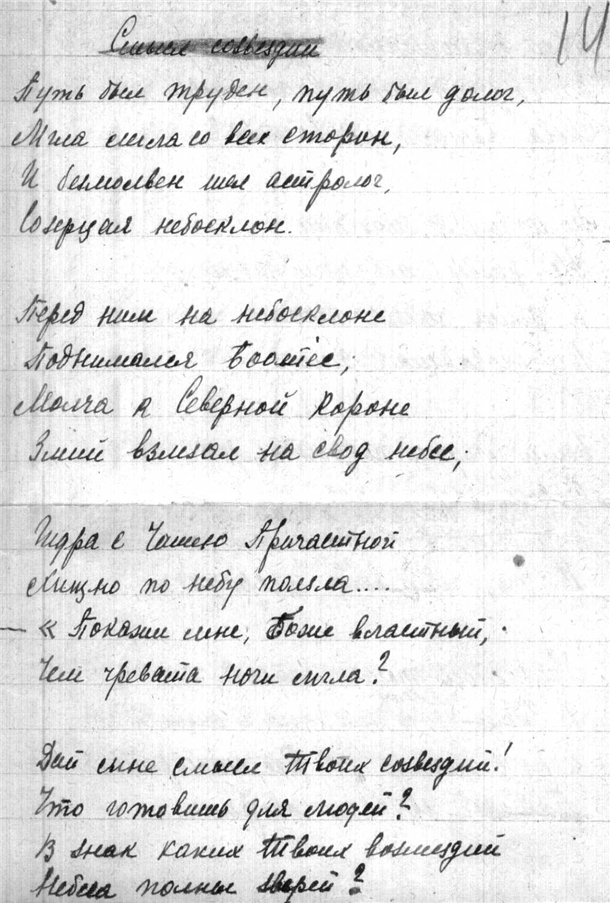 14
Смысл созвездий
Путь был труден, путь был долог,
Мгла легла со всех сторон,
И безмолвен шел астролог,
Созерцая небосклон.
Перед ним на небосклоне
Поднимался Боотес,
Молча к Северной Короне
Змий взлезал на свод небес,
Гидра с Чашею Причастной
Хищно по небу ползла....
— « Покажи мне, Боже властный,
Чем чревата ночи мгла?
Дай мне смысл Твоих созвездий!
Что готовишь для людей?
В знак каких Твоих возмездий
Небеса полны зверей?